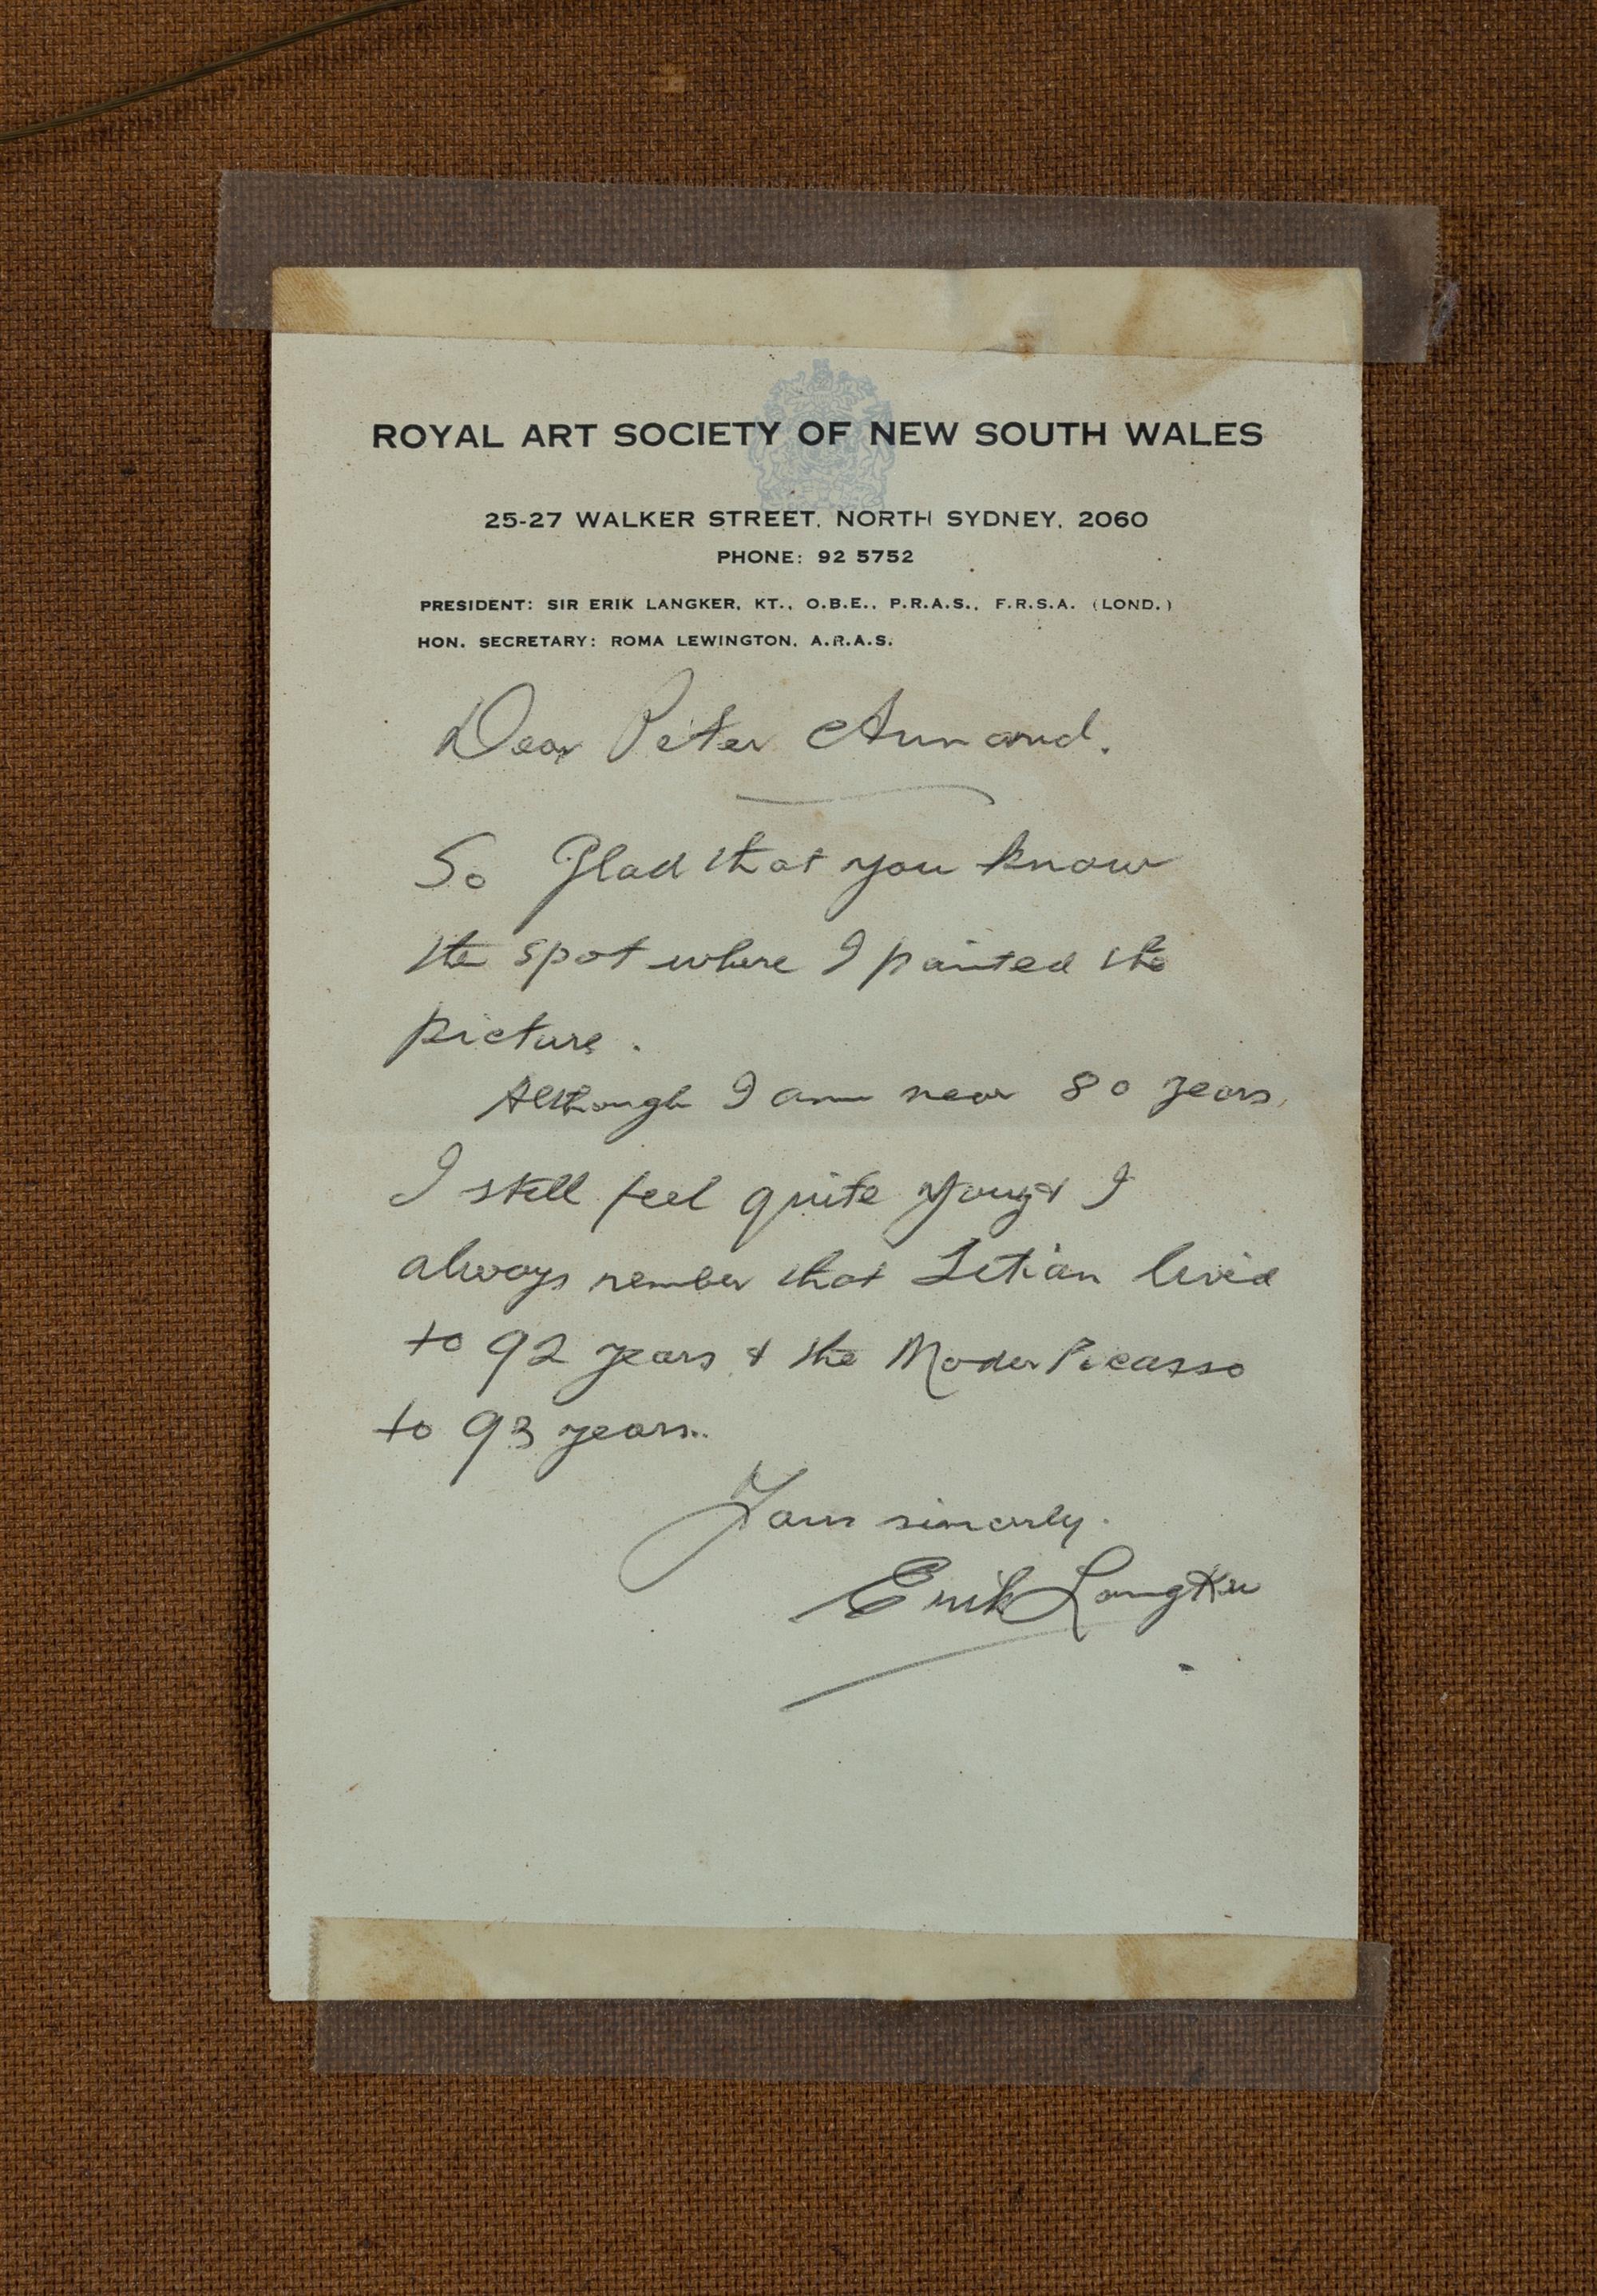 ROYAL ART SOCIETY OF NEW SOUTH WALES
25-27 WALKER STREET, NORTH SYDNEY, 2060
PHONE: 92 5752
PRESIDENT: SIR ERIK LANGKER, KT., O.B.E., P.R.A.S., F.R.S.A. (LOND.)
HON. SECRETARY: ROMA LEWINGTON, A.R.A.S.
Dear Peter
So Glad that you know
the spot where I painted the
picture.
Although I am near 80 years,
I still feel quite young & I
always remember that Titian lived
to 92 years & the Moder Picasso
to 93 years.
Yours sincerly.
Erik Langker